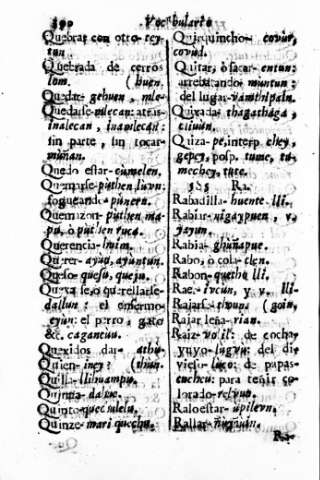 390 Vocabulario
Quebrar con otro-rey-
tun
Quebrada de cerros
lom. (buen.
Quedar-gebuen, mle-
Quedarse-mlecan: atràs-
inalecan, inamlecan:
sin parte, sin tocar-
muñan.
Quedo estar-cumelen.
Quemarse-puthen, luvn:
fogueando-punern.
Quemazon-puthen ma-
pu, ò puthen ruca.
Querencia-huim.
Querer-ayun, ayuntun.
Queso-quesu, quejn.
Quexarse, o querellarse-
dallun: el enfermo-
eyùn: el perro, gato
&c. cagantun.
Quexidos dar-athu-
Quien-iney? (thun.
Quilla-llihuampu.
Quinua-dahue.
Quinto-quechulelu.
Quinze-mari quechu.
Quirquincho-covùr,
covud.
Quitar, ò sacar-entun:
arrebatando-muntun:
del lugar-vamthipaln.
Quixada-thagathaga,
ciiuun.
Quiza-pe, interp. chey,
gepey, posp. tume, tu-
mechey, ture.
Ra.
Rabadilla-huente lli.
Rabiar-nigaypuen, v.
yayun.
Rabia-ghuñapue.
Rabo, ò cola-clen.
Rabon-quethu lli.
Rae-ircun, y v. lli-
Rajars-thoun. (goin,
Rajar leña-rian.
Raiz-voil: de cocha-
yuyo-lugvu: del di
viejo-laco: de papas-
cucheu: para teñir co-
lorado-relvun.
Raloestar-upilevn.
Rallar-ñiuyùn.
Ra-